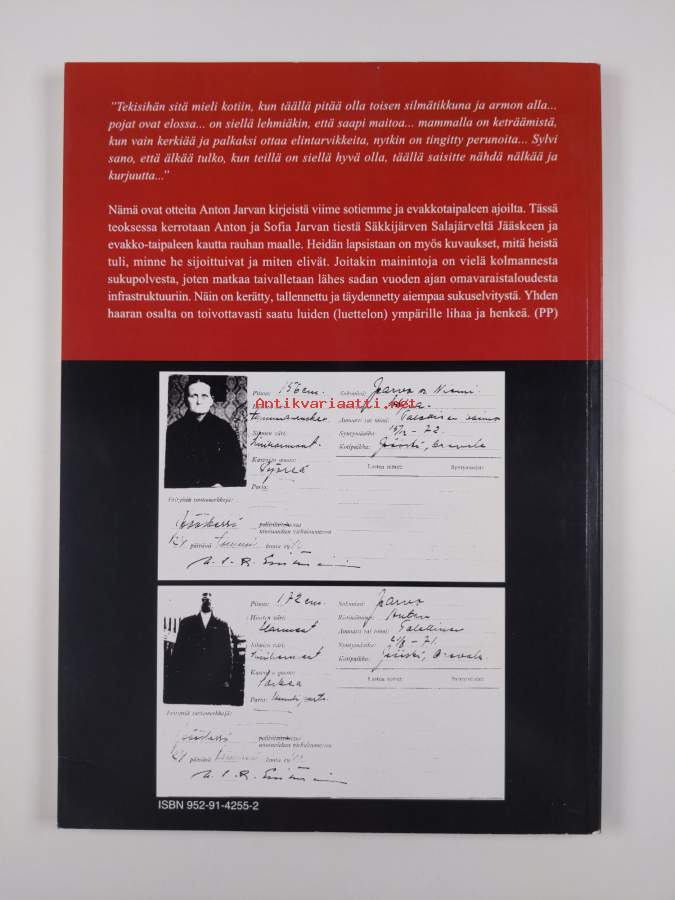 "Tekisihän sitä mieli kotiin, kun täällä pitää olla toisen silmätikkuna ja armon alla...
pojat ovat elossa... on siellä lehmiäkin, että saapi maitoa... mammalla on keträämistä,
kun vain kerkiää ja palkaksi ottaa elintarvikkeita, nytkin on tingitty perunoita... Sylvi
sano, että älkää tulko, kun teillä on siellä hyvä olla, täällä saisitte nähdä nälkää ja
kurjuutta..."
Nämä ovat otteita Anton Jarvan kirjeistä viime sotiemme ja evakkotaipaleen ajoilta. Tässä
teoksessa kerrotaan Anton ja Sofia Jarvan tiestä Säkkijärven Salajärveltä Jääskeen ja
evakko-taipaleen kautta rauhan maalle. Heidän lapsistaan on myös kuvaukset, mitä heistä
tuli, minne he sijoittuivat ja miten elivät. Joitakin mainintoja on vielä kolmannesta
sukupolvesta, joten matkaa taivalletaan lähes sadan vuoden ajan omavaraistaloudesta
infrastruktuuriin. Näin on kerätty, tallennettu ja täydennetty aiempaa sukuselvitystä. Yhden
haaran osalta on toivottavasti saatu luiden (luettelon) ympärille lihaa ja henkeä. (PP)
Pituus: 156 cm. Sukunimi:
Antikvariaatti.net
Ammatti tai toimi:
Silmien väri: Syntymäaika: -72.
Kotipaikka: Jääski,
Kasvojen muoto: Lasten nimet: Syntymäajat:
Pyöreä
Puria:
Erityisiä tuntomerkkejä:
päivänä
Pituus: 172 cm. Sukunimi: Jarva
Hiusten väri: Ristimänimet: Anton
Ammatti tai toimi:
Silmien väri: Syntymäaika: -71.
Kotipaikka: Jääski,
Kasvojen muoto: Lasten nimet: Syntymäajat:
Soikea
Erityisiä tuntomerkkejä:
päivänä
ISBN 952-91-4255-2